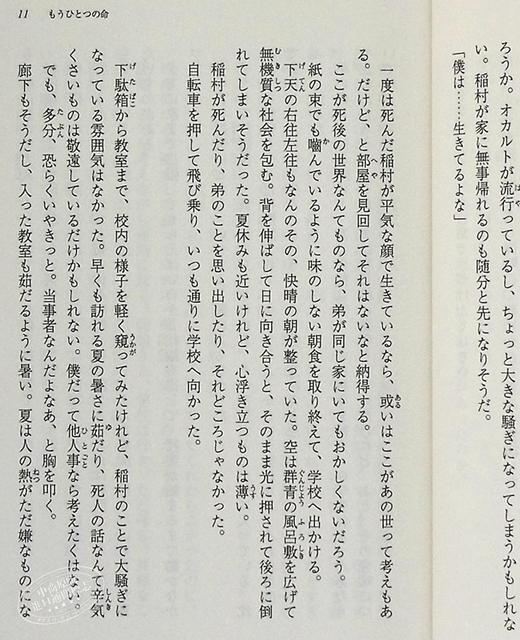 11 もうひとつの命
はや
ろうか。オカルトが流行っているし、ちょっと大きな騒ぎになってしまうかもしれな
い。稲村が家に無事帰れるのも随分と先になりそうだ。
「僕は……生きてるよな」
ある
一度は死んだ稲村が平気な顔で生きているなら、或いはここがあの世って考えもあ
へや
る。だけど、と部屋を見回してそれはないなと納得する。
ここが死後の世界なんてものなら、弟が同じ家にいてもおかしくないだろう。
か
紙の束でも噛んでいるように味のしない朝食を取り終えて、学校へ出かける。
げてん ぐんじょう ふろしき
下天の右往左往もなんのその、快晴の朝が整っていた。空は群青の風呂敷を広げて
むきしつ
無機質な社会を包む。背を伸ばして日に向き合うと、そのまま光に押されて後ろに倒
うす
れてしまいそうだった。夏休みも近いけれど、心浮き立つものは薄い。
稲村が死んだり、弟のことを思い出したり、それどころじゃなかった。
自転車を押して飛び乗り、いつも通りに学校へ向かった。
げたばこ うかが
下駄箱から教室まで、校内の様子を軽く窺ってみたけれど、稲村のことで大騒ぎに
ゆ しんき
なっている雰囲気はなかった。早くも訪れる夏の暑さに茹だり、死人の話なんて辛気
ひとごと
くさいものは敬遠しているだけかもしれない。僕だって他人事なら考えたくはない。
たぶん
でも、多分、恐らくいやきっと。当事者なんだよなあ、と胸を叩く。
ねつ
廊下もそうだし、入った教室も茹だるように暑い。夏は人の熱がただ嫌なものにな